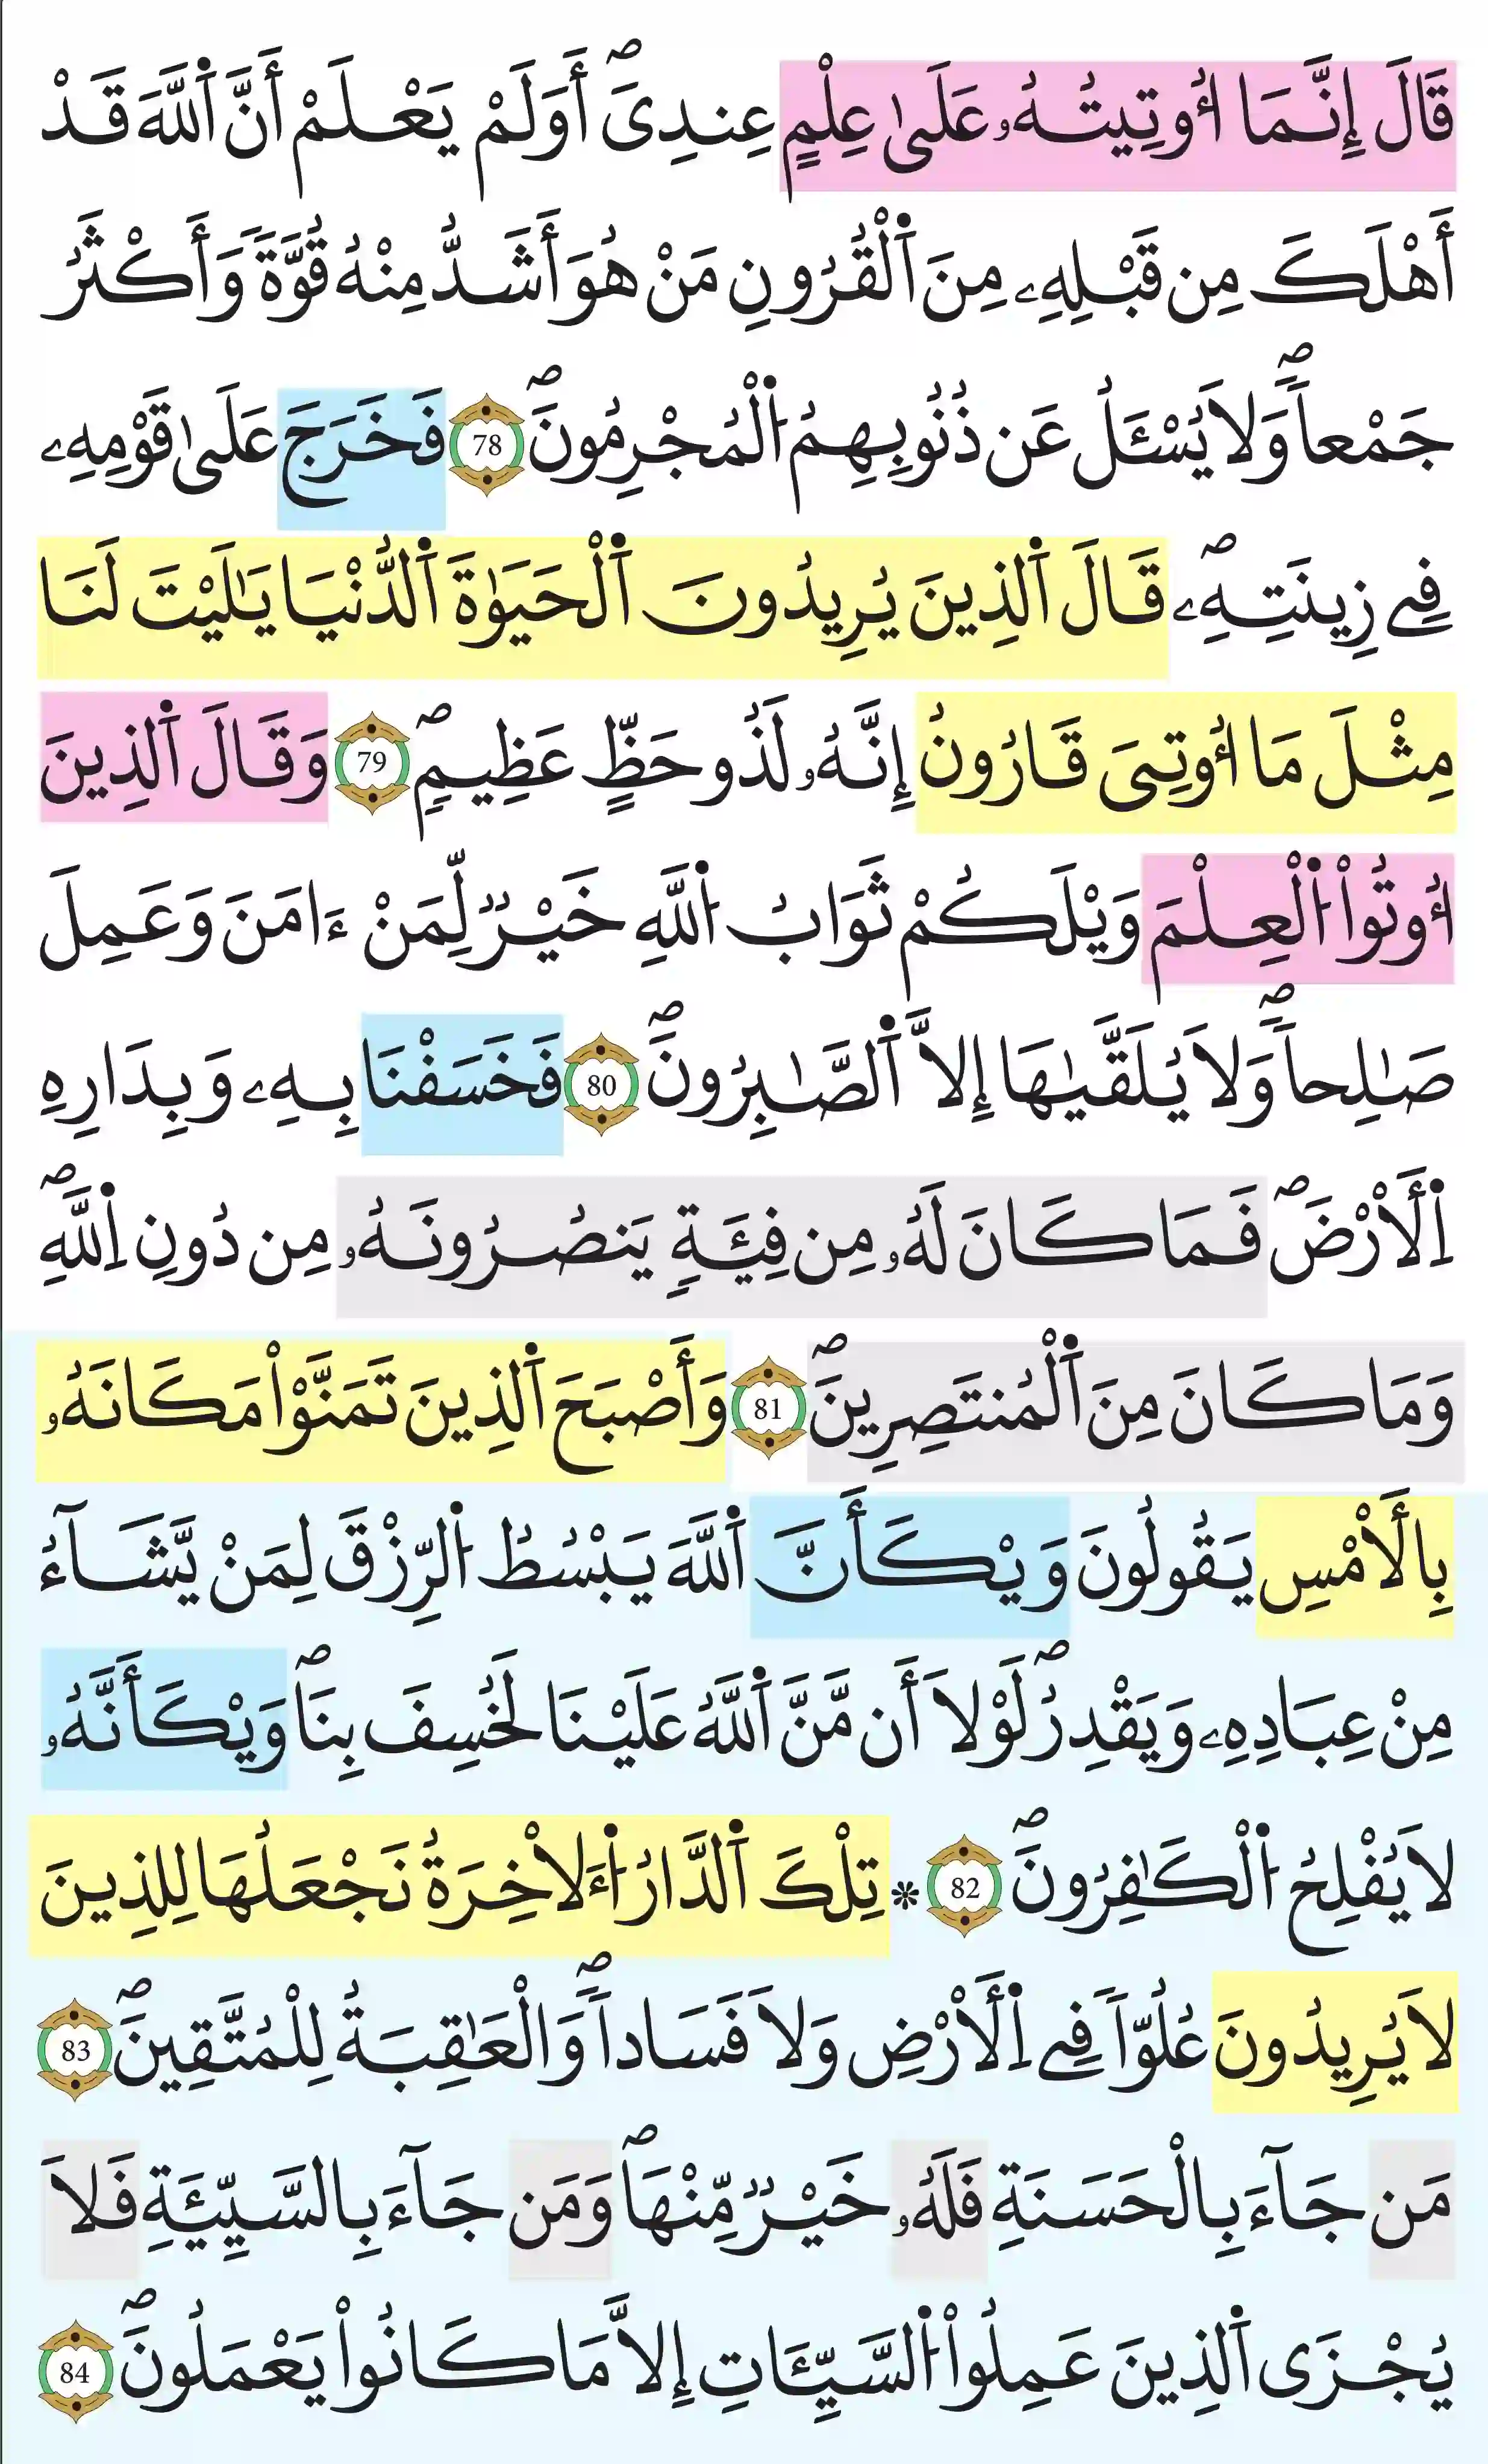 قَالَ إِنَّمَا أُوتِيتُهُۥ عَلَىٰ عِلْمٍ عِندِىَ أَوَلَمْ يَعْلَمْ أَنَّ اَ۬للَّهَ قَدْ
أَهْلَكَ مِن قَبْلِهِۦ مِنَ اَ۬لْقُرُونِ مَنْ هُوَ أَشَدُّ مِنْهُ قُوَّةٗ وَأَكْثَرُ
جَمْعاٗ وَلَا يُسْـَٔلُ عَن ذُنُوبِهِمُ اُ۬لْمُجْرِمُونَۖ 78 فَخَرَجَ عَلَىٰ قَوْمِهِۦ
فِے زِينَتِهِۦۖ قَالَ اَ۬لذِينَ يُرِيدُونَ اَ۬لْحَيَوٰةَ اَ۬لدُّنْيَا يَٰلَيْتَ لَنَا
مِثْلَ مَا أُوتِىَ قَارُونُ إِنَّهُۥ لَذُو حَظٍّ عَظِيمٖۖ 79 وَقَالَ اَ۬لذِينَ
أُوتُواْ اُ۬لْعِلْمَ وَيْلَكُمْ ثَوَابُ اُ۬للَّهِ خَيْرٞ لِّمَنْ ءَامَنَ وَعَمِلَ
صَٰلِحاٗۖ وَلَا يُلَقَّىٰهَا إِلَّا اَ۬لصَّٰبِرُونَۖ 80 فَخَسَفْنَا بِهِۦ وَبِدَارِهِ
اِ۬لْأَرْضَۖ فَمَا كَانَ لَهُۥ مِن فِئَةٖ يَنصُرُونَهُۥ مِن دُونِ اِ۬للَّهِۖ
وَمَا كَانَ مِنَ اَ۬لْمُنتَصِرِينَۖ 81 وَأَصْبَحَ اَ۬لذِينَ تَمَنَّوْاْ مَكَانَهُۥ
بِالْأَمْسِ يَقُولُونَ وَيْكَأَنَّ اَ۬للَّهَ يَبْسُطُ اُ۬لرِّزْقَ لِمَنْ يَّشَآءُ
مِنْ عِبَادِهِۦ وَيَقْدِرُۖ لَوْلَا أَن مَّنَّ اَ۬للَّهُ عَلَيْنَا لَخُسِفَ بِنَاۖ وَيْكَأَنَّهُۥ
لَا يُفْلِحُ اُ۬لْكَٰفِرُونَۖ 82 * تِلْكَ اَ۬لدَّارُ اُ۬لَأخِرَةُ نَجْعَلُهَا لِلذِينَ
لَا يُرِيدُونَ عُلُوّاٗ فِے اِ۬لْأَرْضِ وَلَا فَسَاداٗۖ وَالْعَٰقِبَةُ لِلْمُتَّقِينَۖ 83
مَن جَآءَ بِالْحَسَنَةِ فَلَهُۥ خَيْرٞ مِّنْهَاۖ وَمَن جَآءَ بِالسَّيِّئَةِ فَلَا
يُجْزَى اَ۬لذِينَ عَمِلُواْ اُ۬لسَّيِّـَٔاتِ إِلَّا مَا كَانُواْ يَعْمَلُونَۖ 84